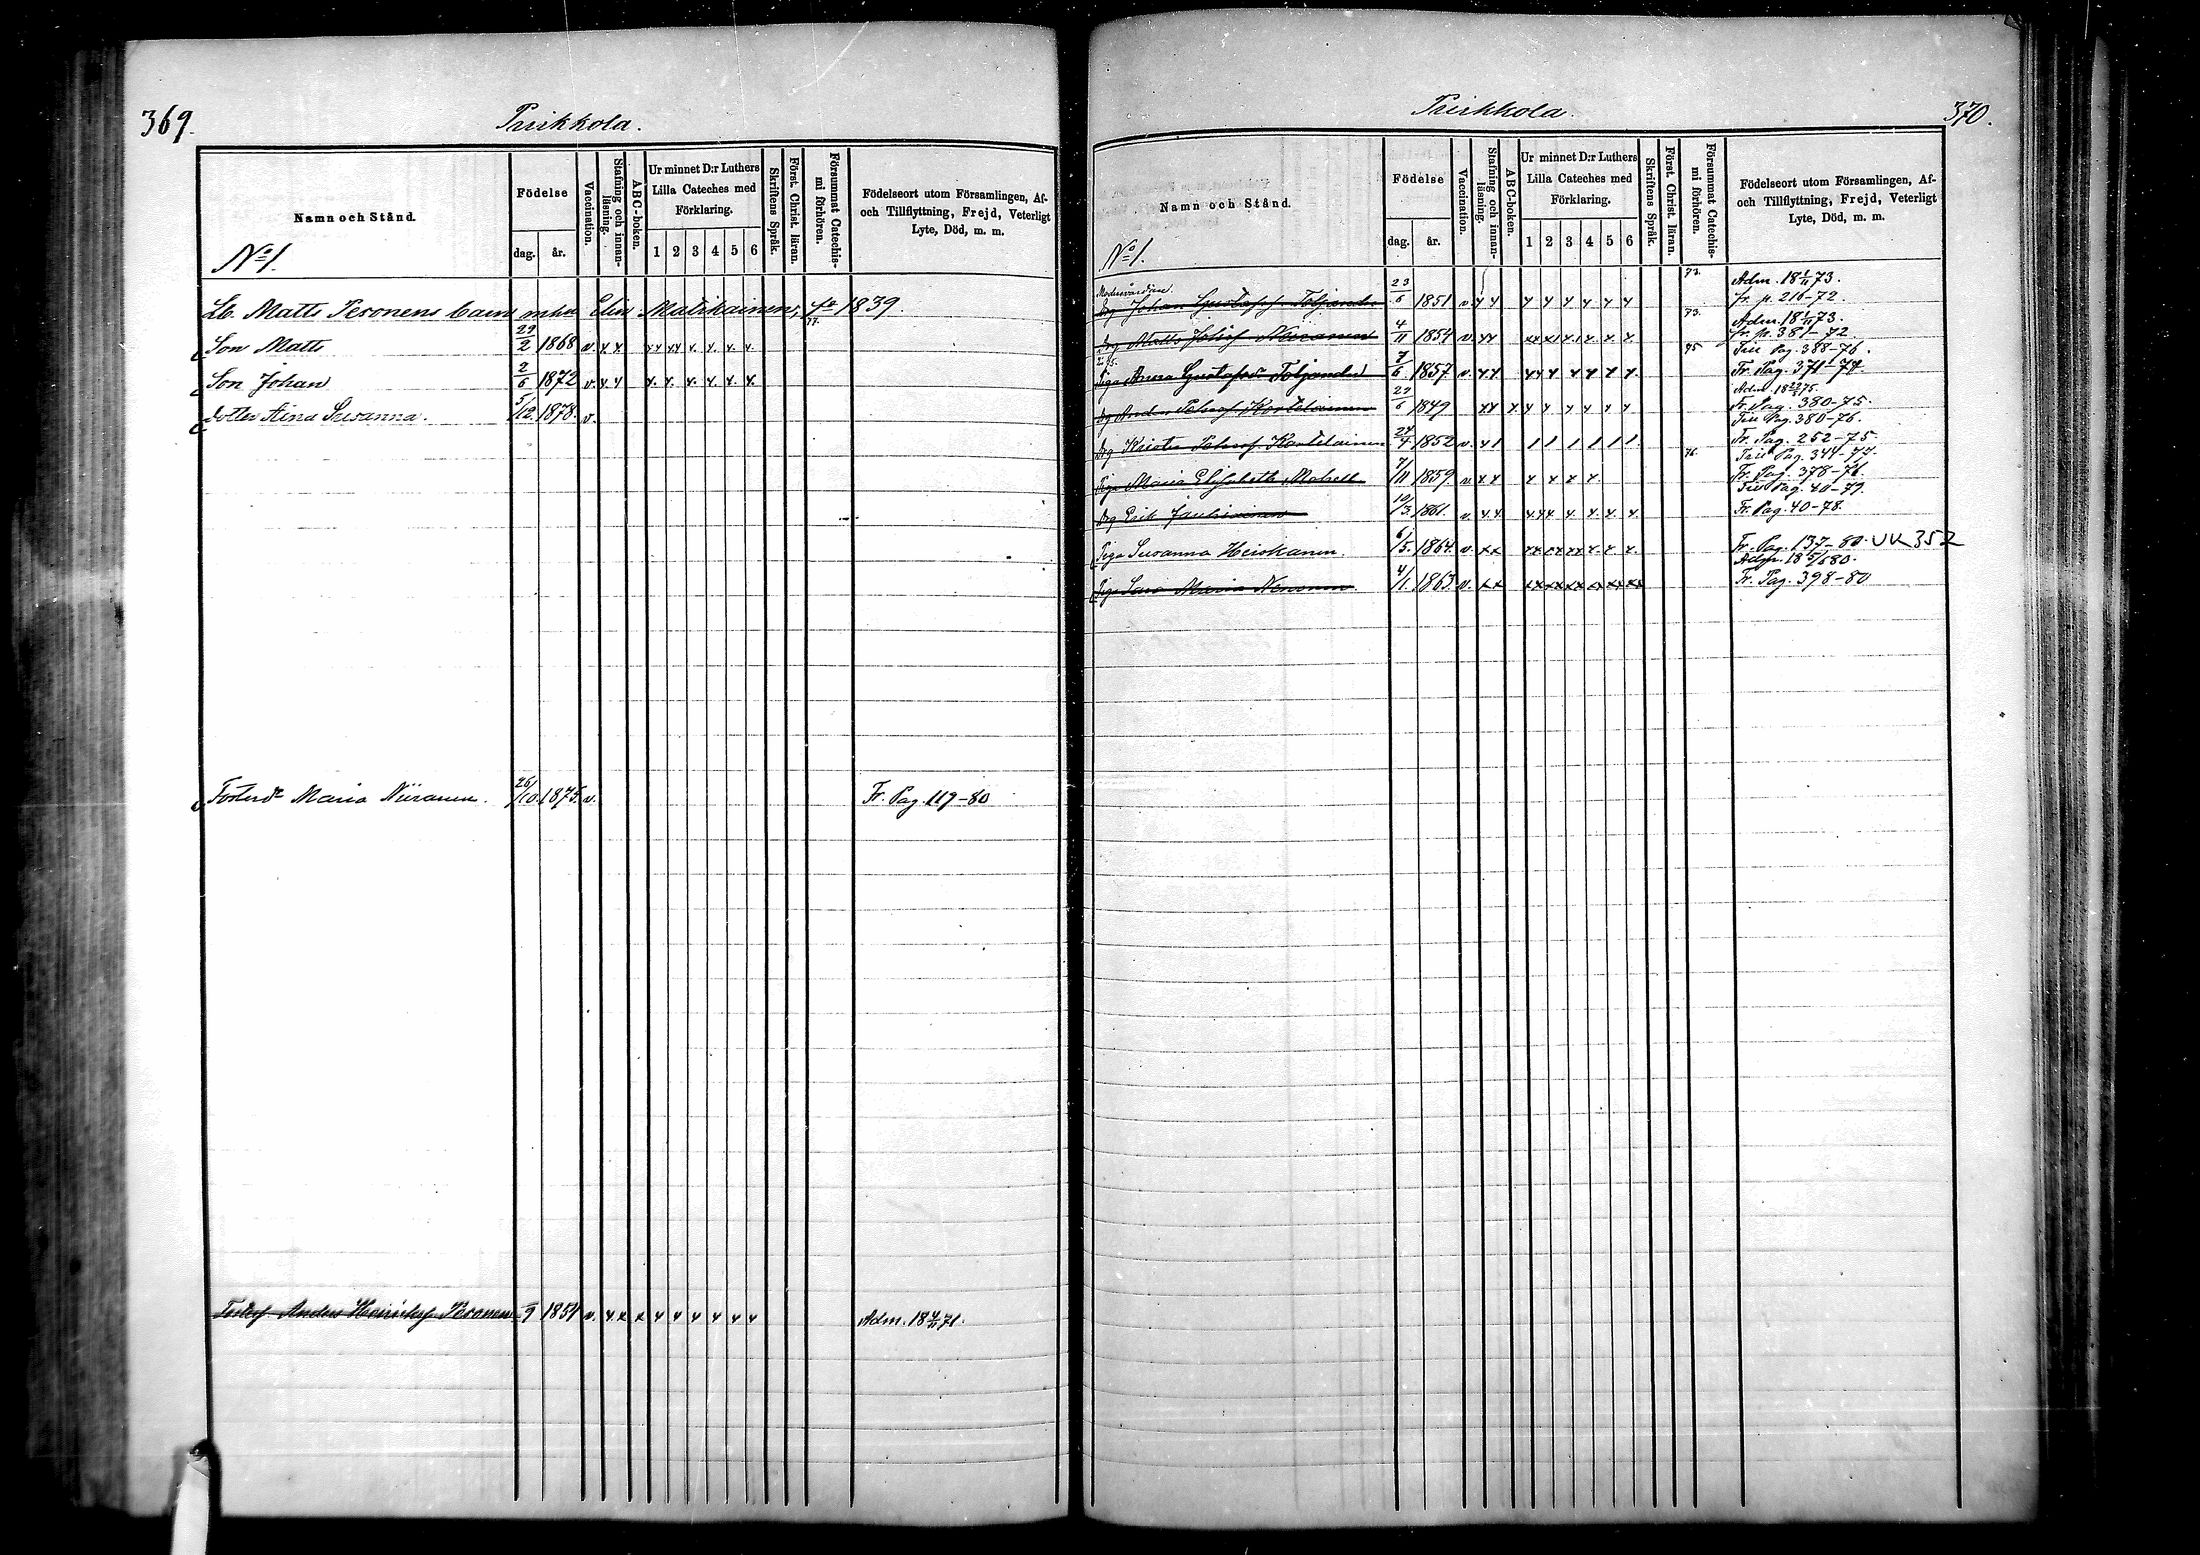 369.
Puikkola.
Namn och Stånd.
Födelse
dag. år.
Vaccination.
Stafning och innanläsning.
ABC-boken.
Ur minnet D:r Luthers
Lilla Cateches med
Förklaring.
1 2 3 4 5 6
Skriftens Språk.
Först. Christ. läran.
Försummat Catechismi förhören.
Födelseort utom Församlingen, Af-
och Tillflyttning, Frejd, Veterligt
Lyte, Död, m. m.
No 1.
Lb. Matts Peronens barn m hu Elin Matikainen, fo 1839.
Son Matts 29/2 1868 v. x x xx xx x. x. x. x. 77.
Son Johan 2/6 1872 v. x x x. x. x. x. x. x.
dotter Aina Susanna. 5/12. 1878. v.
Fosterdr Maria Niiranen. 26/10. 1875. v. Fr. Pag. 119-80
Anders Henricksf. Peronen 9 1854 v. x x x x x x x x x Adm. 18 71.
370.
Puikkola.
Namn och Stånd.
Födelse
dag. år.
Vaccination.
Stafning och innanläsning.
ABC-boken.
Ur minnet D:r Luthers
Lilla Cateches med
Förklaring.
1 2 3 4 5 6
Skriftens Språk.
Först. Christ. läran.
Försummat Catechismi förhören.
Födelseort utom Församlingen, Af-
och Tillflyttning, Frejd, Veterligt
Lyte, Död, m. m.
No 1.
Drg Johan Gustafsf Toljander 23/6 1851 v. x x x x x x x x 73. Adm. 18 73.
fr. p. 216-72.
Drg Matts Josef 4/11 1854 v. x x xx x x x x x 73. Adm. 18 73.
fr. p 381-72
Piga Anna Gustafsdr Toljander 7/6 1857 v. x x xx x x x x x 75 Till Pag. 388-76.
Fr. Pag. 371-74
Drg Anders Korteleinen 29/6 1849 x x x x x x x x x Adm. 18 75.
Fr. Pag. 380-75.
Till Pag. 380-76.
Drg Krister Kortelainen 24/4 1852 v. x 1 1 1 1 1 1 1 Fr. Pag. 252-75.
Till Pag. 344-77.
Piga Maria Elisabeth Makell 7/11 1859. v. x x x x x x 76. Fr. Pag. 378-76.
Till Pag. 40-79.
Drg Erik 10/3. 1861. v. x x x xx x x x x. Fr. Pag. 40-78.
Piga Susanna Heiskanen. 6/5. 1864. v. x x xx xx xx x. x. x. Fr. Pag. 137-80. UK 352
Adm. 18 80.
Piga Sara Maria Nevonen 4/1. 1863. v. x x xx xx xx x xx xx Fr. Pag. 398-80